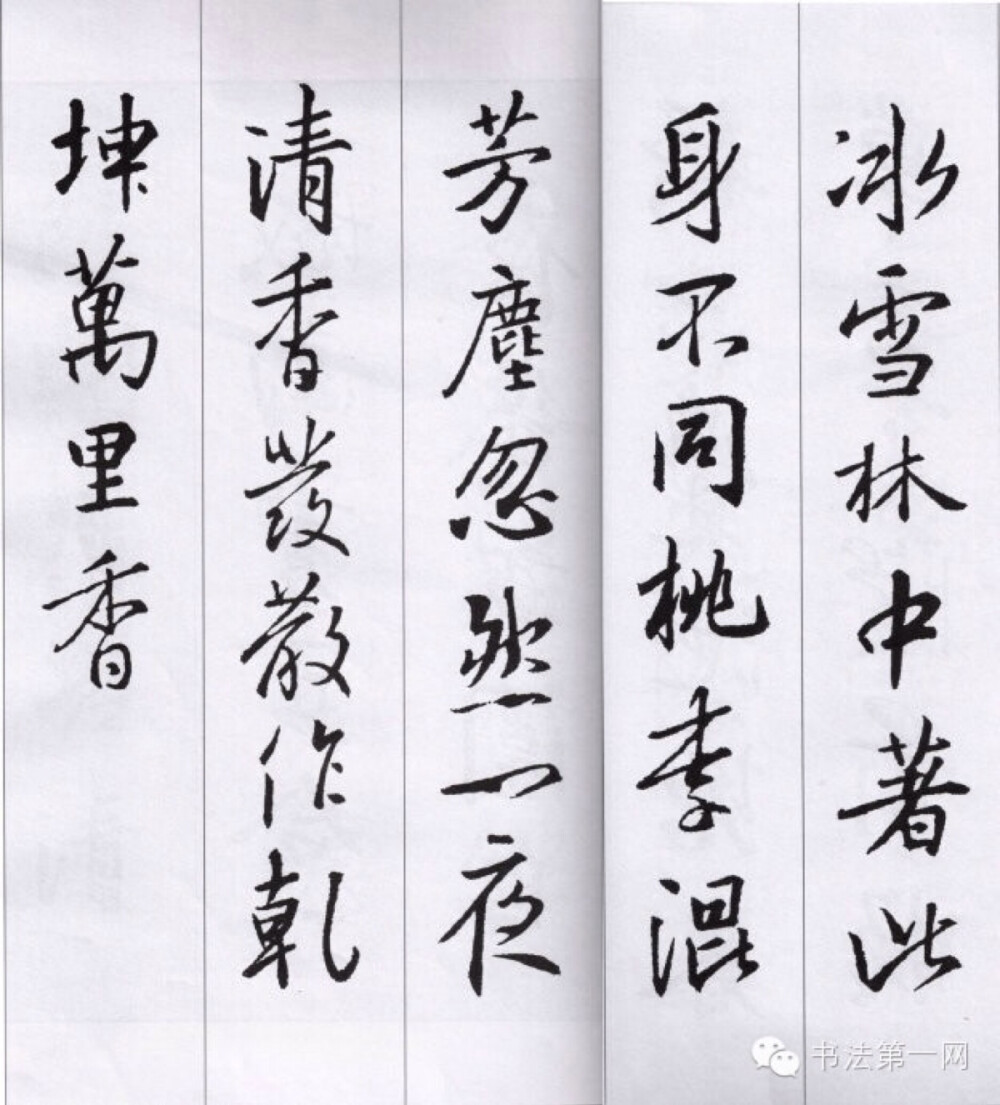 冰雪林中著此
身不同桃李混
芳塵忽然一夜
清香發散作乾
坤萬里香
书法第一网